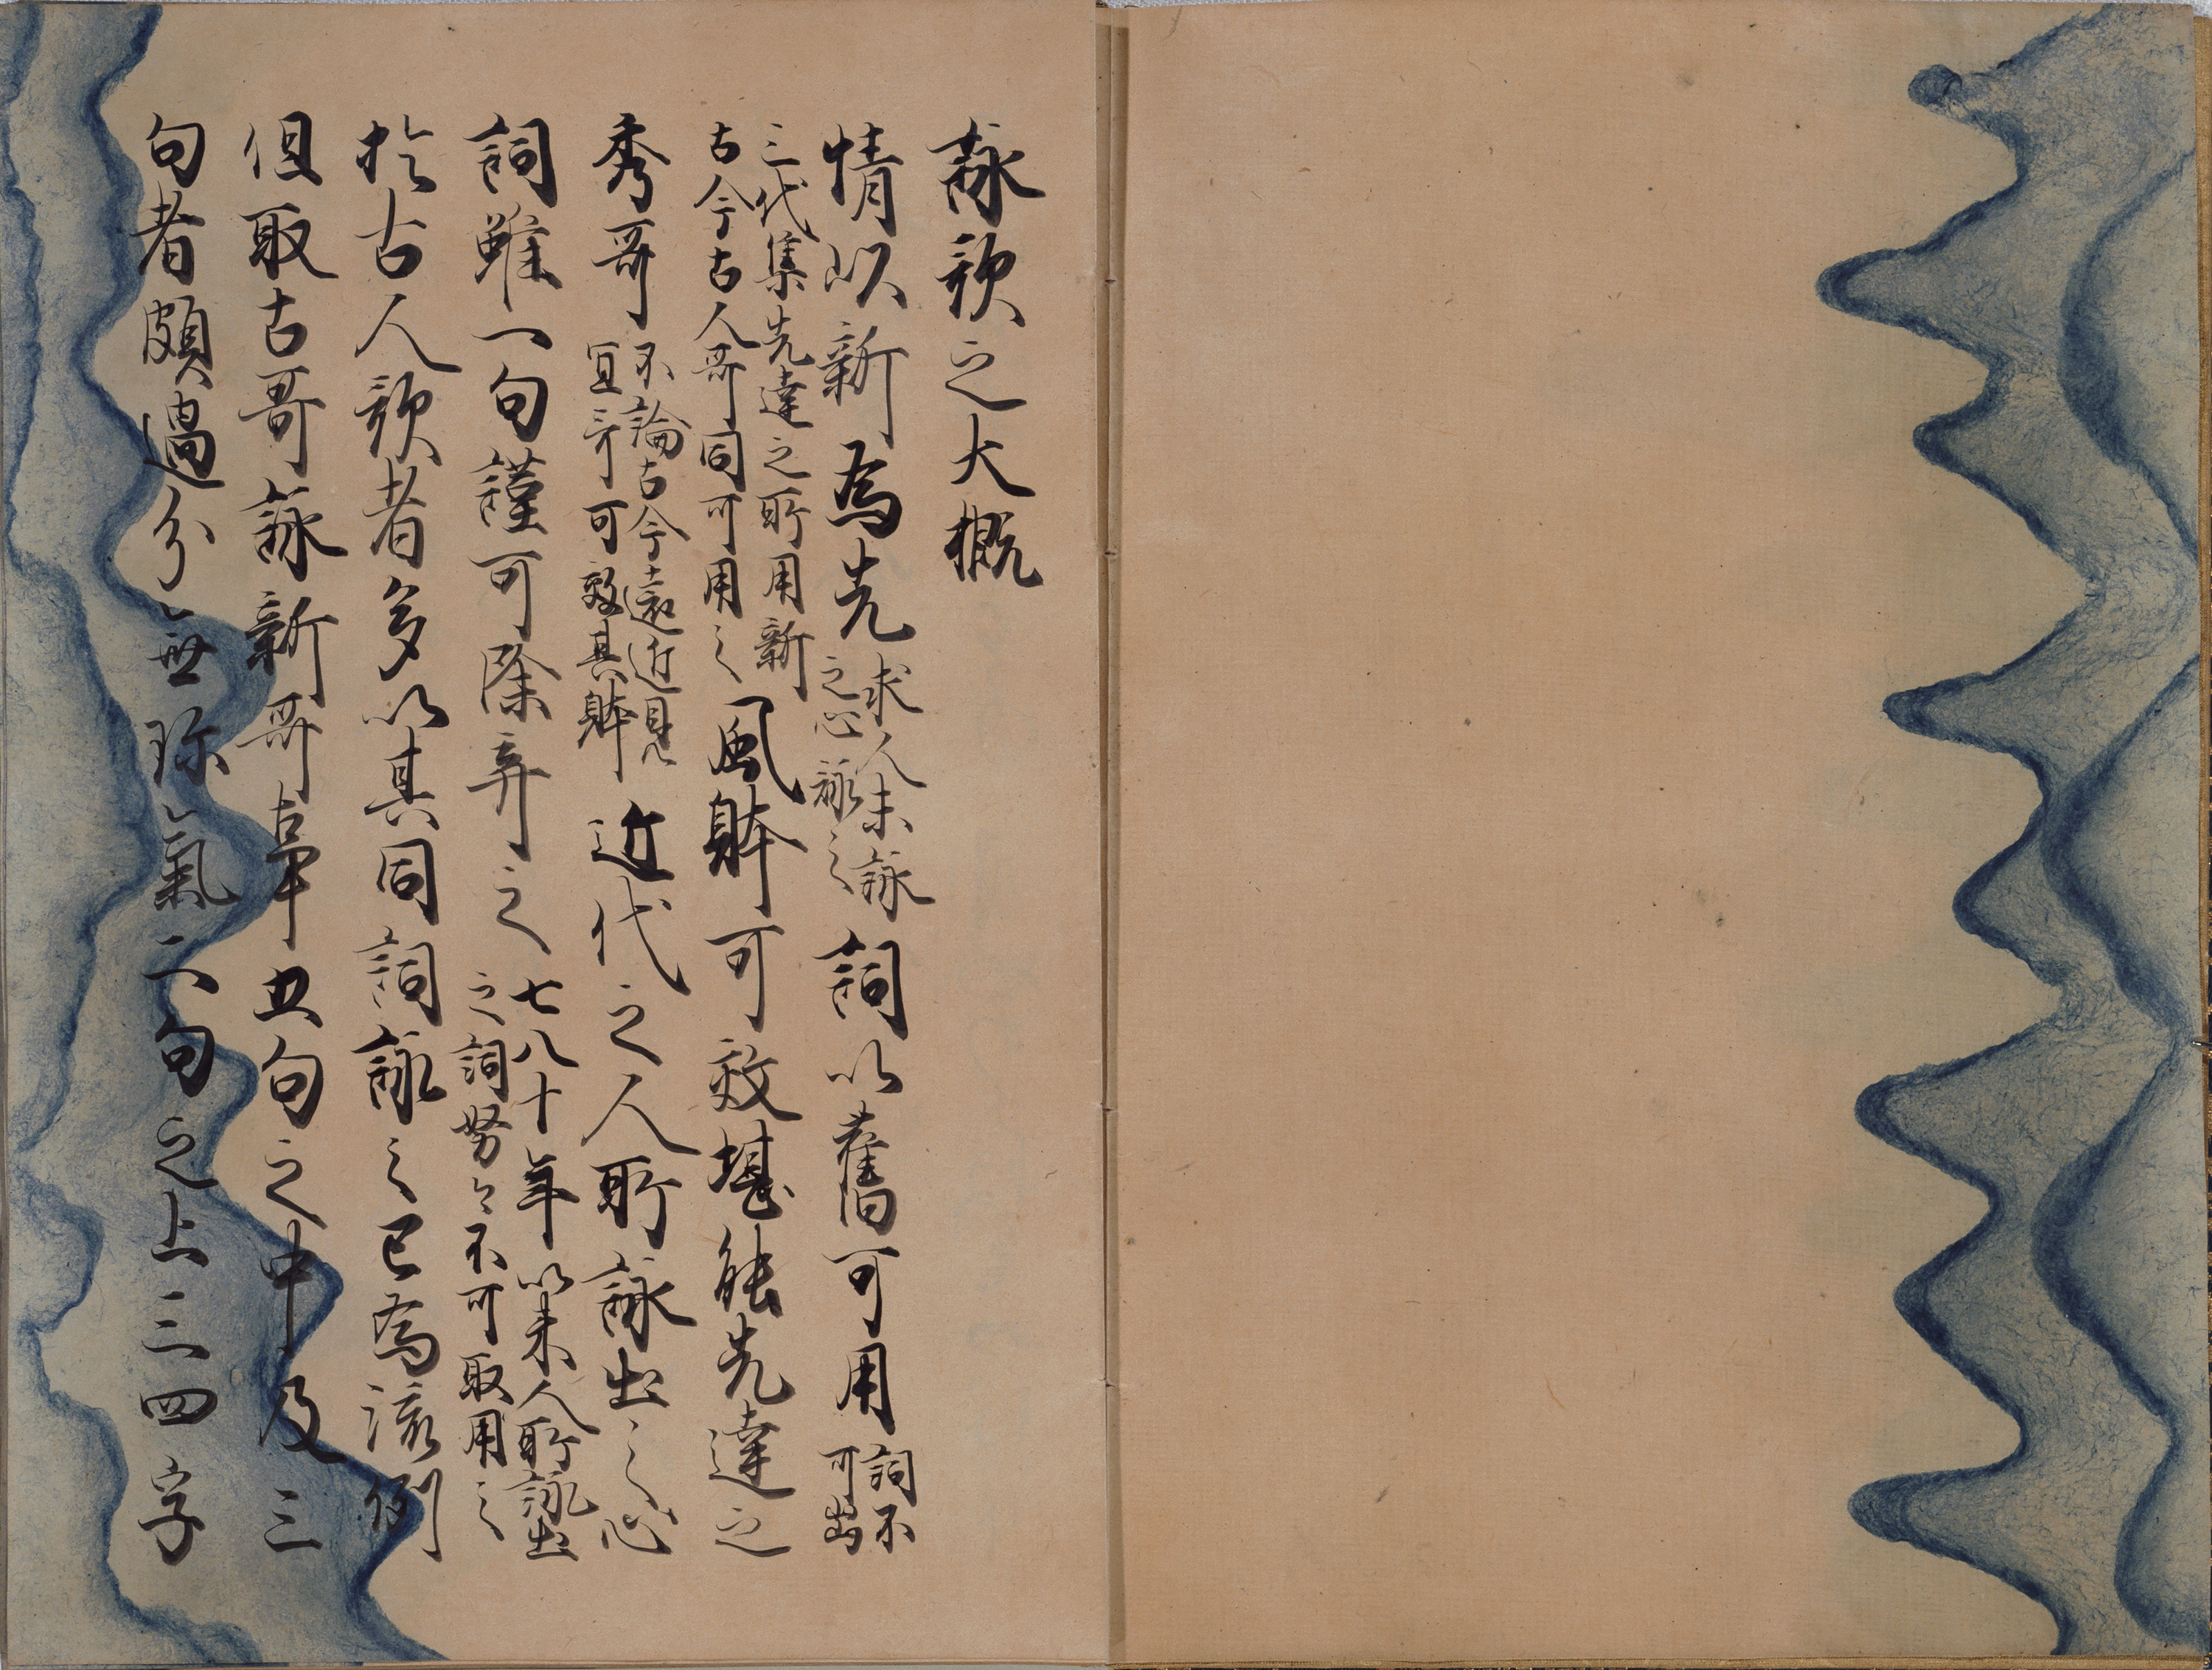 詠歌之大概
情以新為先求人未詠之心詠之詞以舊可用詞不可出
三代集先達之所用新古今古人哥同可用之風躰可效堪能先達之
秀哥不論古今遠近見宜哥可效其躰近代之人所詠出之心
詞雖一句謹可除弃之七八十年以来人所詠出之詞努々不可取用之
於古人歌者多以其同詞詠之已為流例
但取古哥詠新哥事五句之中及三
句者頗過分無珎氣二句之上三四字